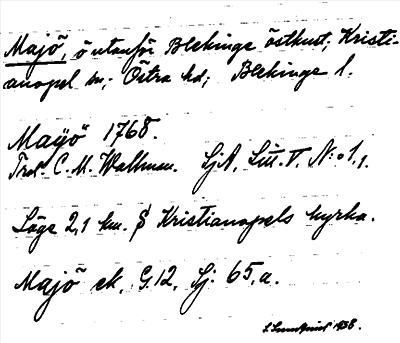 Majö, ö utanför Blekinge östkust; Kristi-
anopel sn; Östra hd; Blekinge l.
Mayö 1768.
Trol. C. M. Wallman. SjA, Litt. T. N:o 1,1.
Läge 2,1 km. S Kristianopels kyrka.
Majö ek, G.12, Sj: 65,a.
1938.